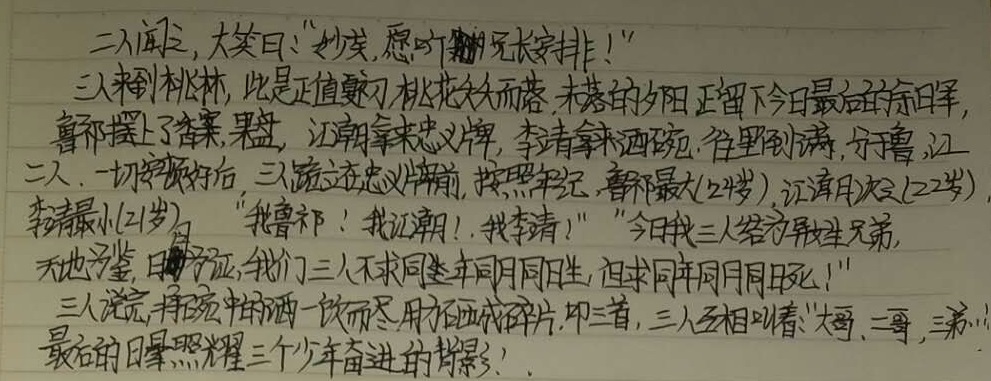 二人闻之，大笑曰：“妙哉，愿听兄长安排！”
三人来到桃林，此是正值夏初，桃花夭夭而落，未落的夕阳正留下今日最后的余日晖，
鲁祁摆上了香案，果盘，江潮拿来忠义牌，李靖拿来酒碗，往里倒满，分于鲁，江
二人．一切安顿好后，三人跪立在忠义牌前，按照年纪，鲁祁最大(24岁)，江潮次之(22岁)，
李靖最小(21岁)，“我鲁祁！我江潮！我李靖！”“今日我三人结为异姓兄弟，
天地可鉴，日月可证，我们三人不求同年同月同日生，但求同年同月同日死！”
三人说完，将碗中的酒一饮而尽，用力砸成碎片，叩三首，三人互相叫着：“大哥、二哥，三弟…”
最后的日晕照耀三个少年奋进的背影！